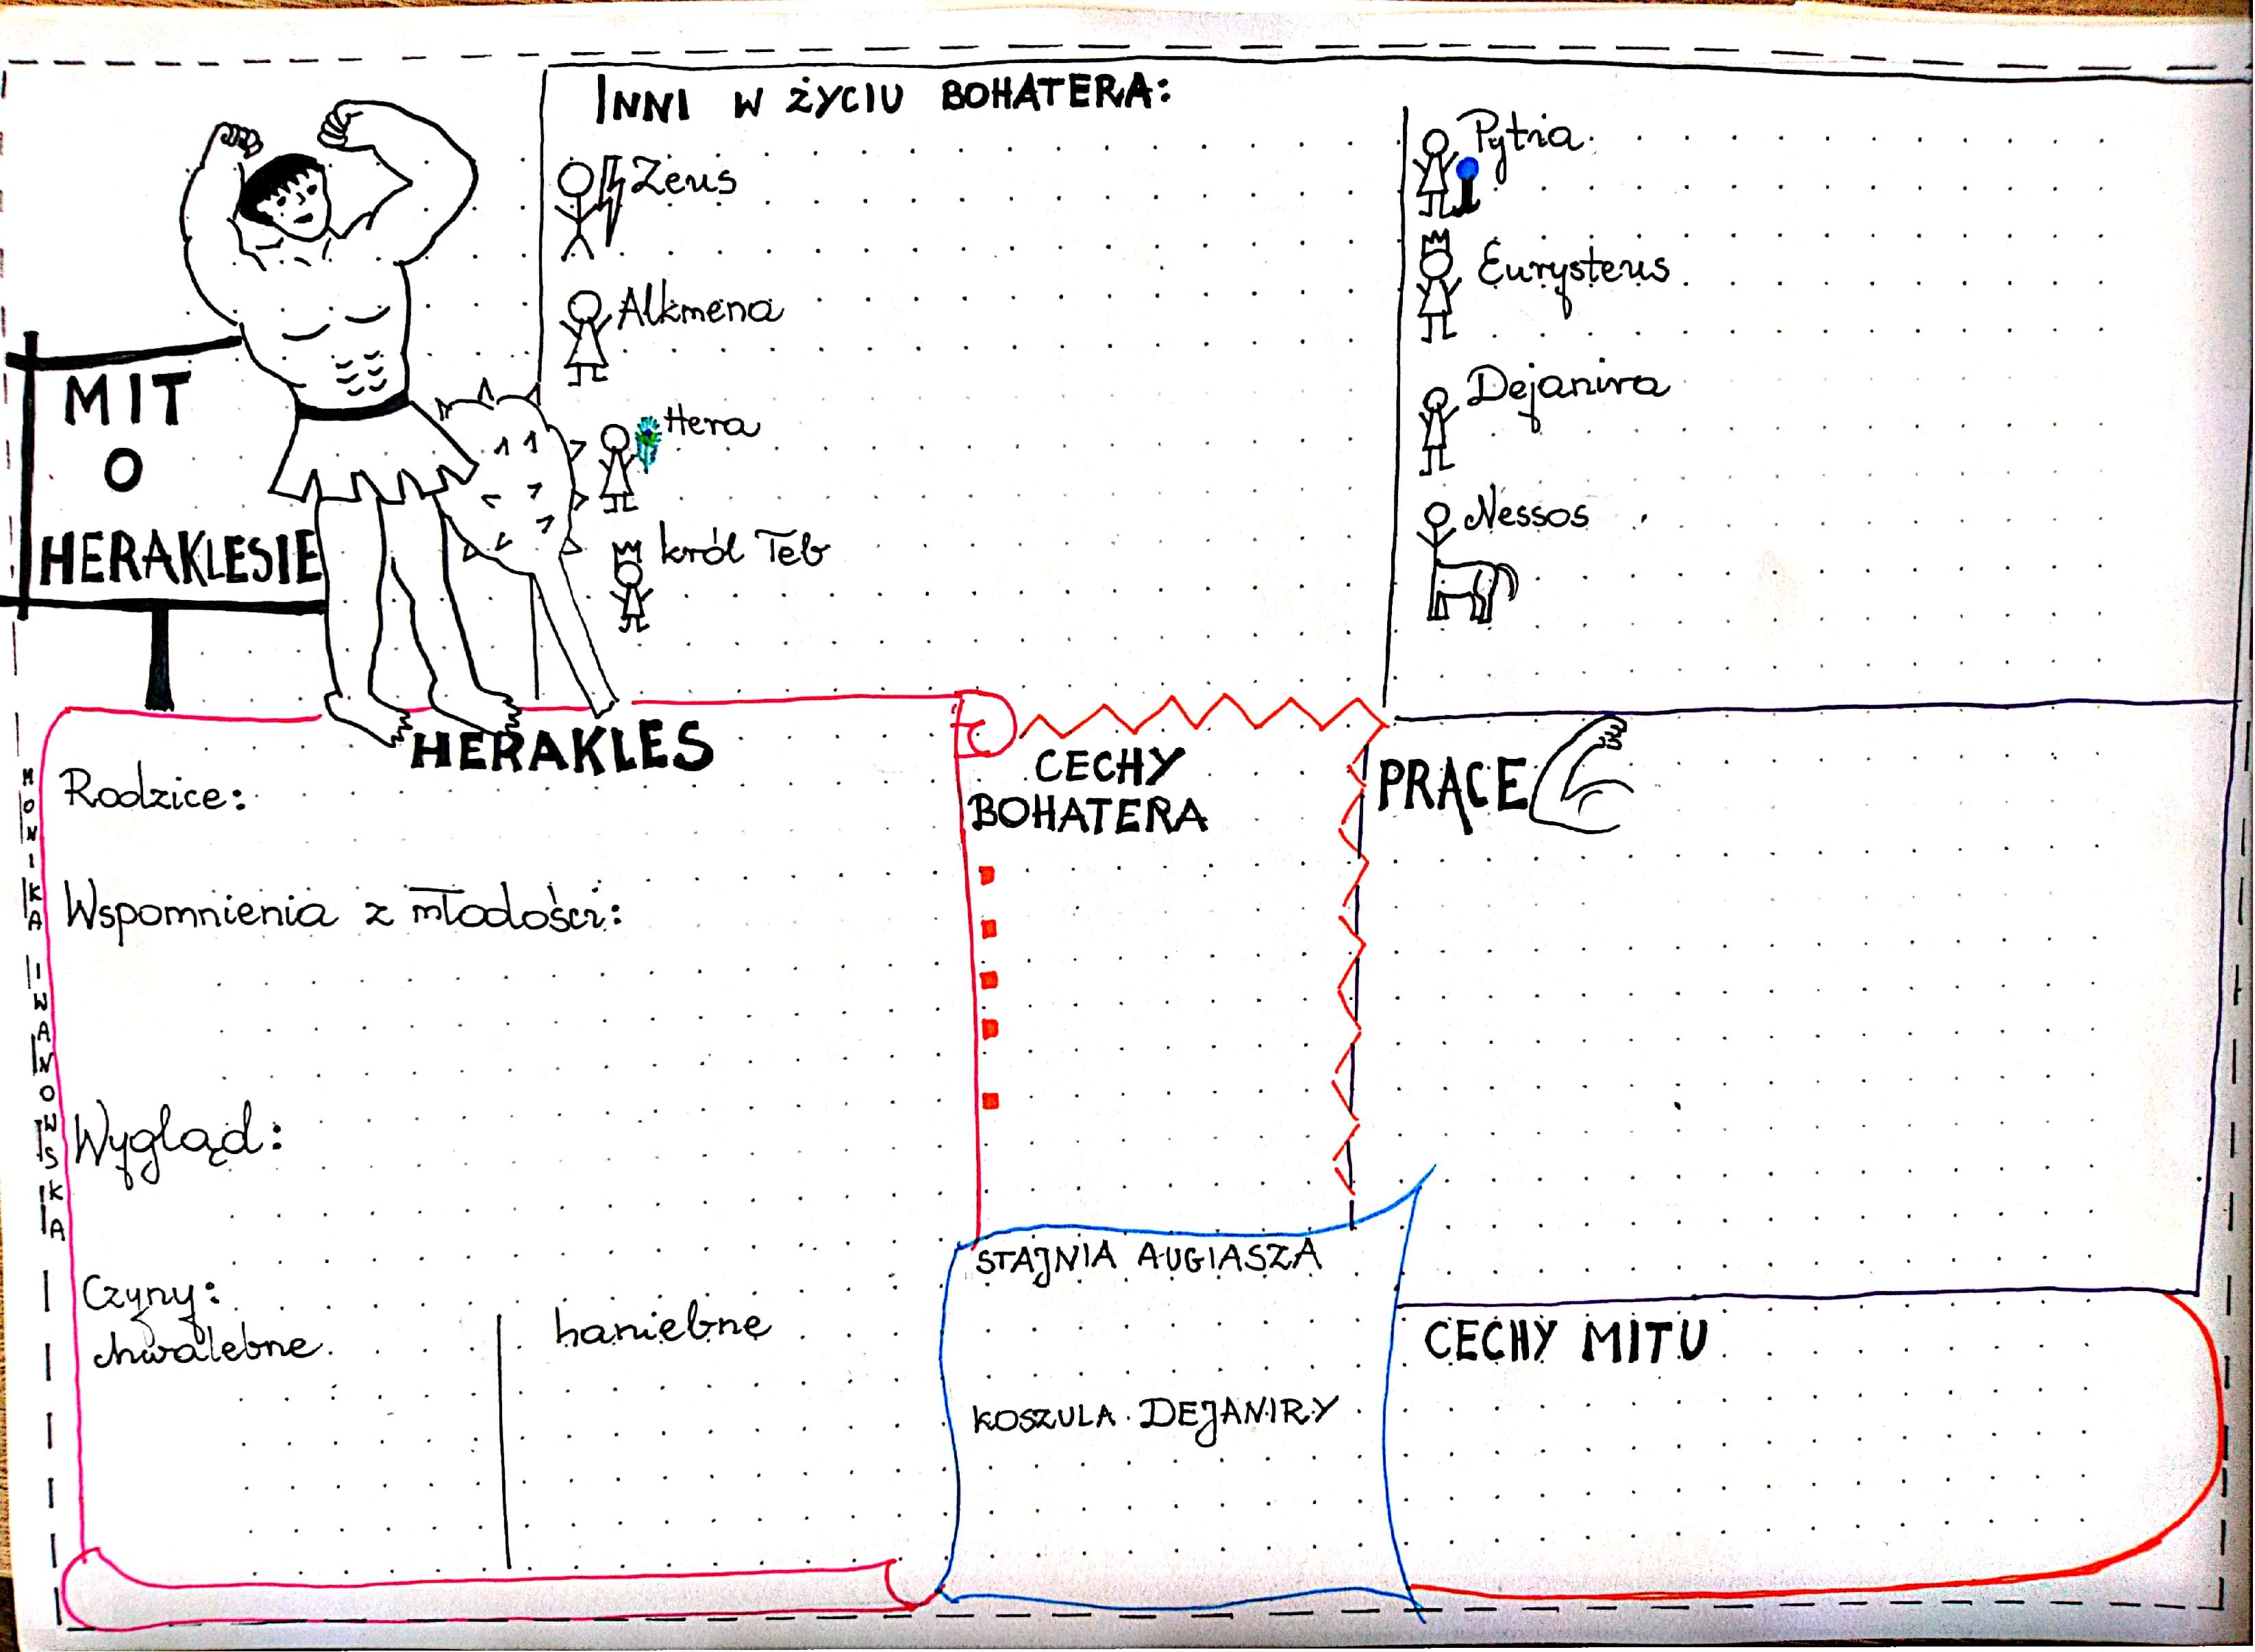 MIT
O
HERAKLESIE
INNI W ŻYCIU BOHATERA:
Zeus
Alkmena
Hera
król Teb
Pytia
Eurysteus
Dejanira
Nessos
HERAKLES
Rodzice:
Wspomnienia z młodości:
Wygląd:
Czyny:
chwalebne
haniebne
CECHY
BOHATERA
PRACE
STAJNIA AUGIASZA
KOSZULA DEJANIRY
CECHY MITU
MONIKA IWANOWSKA